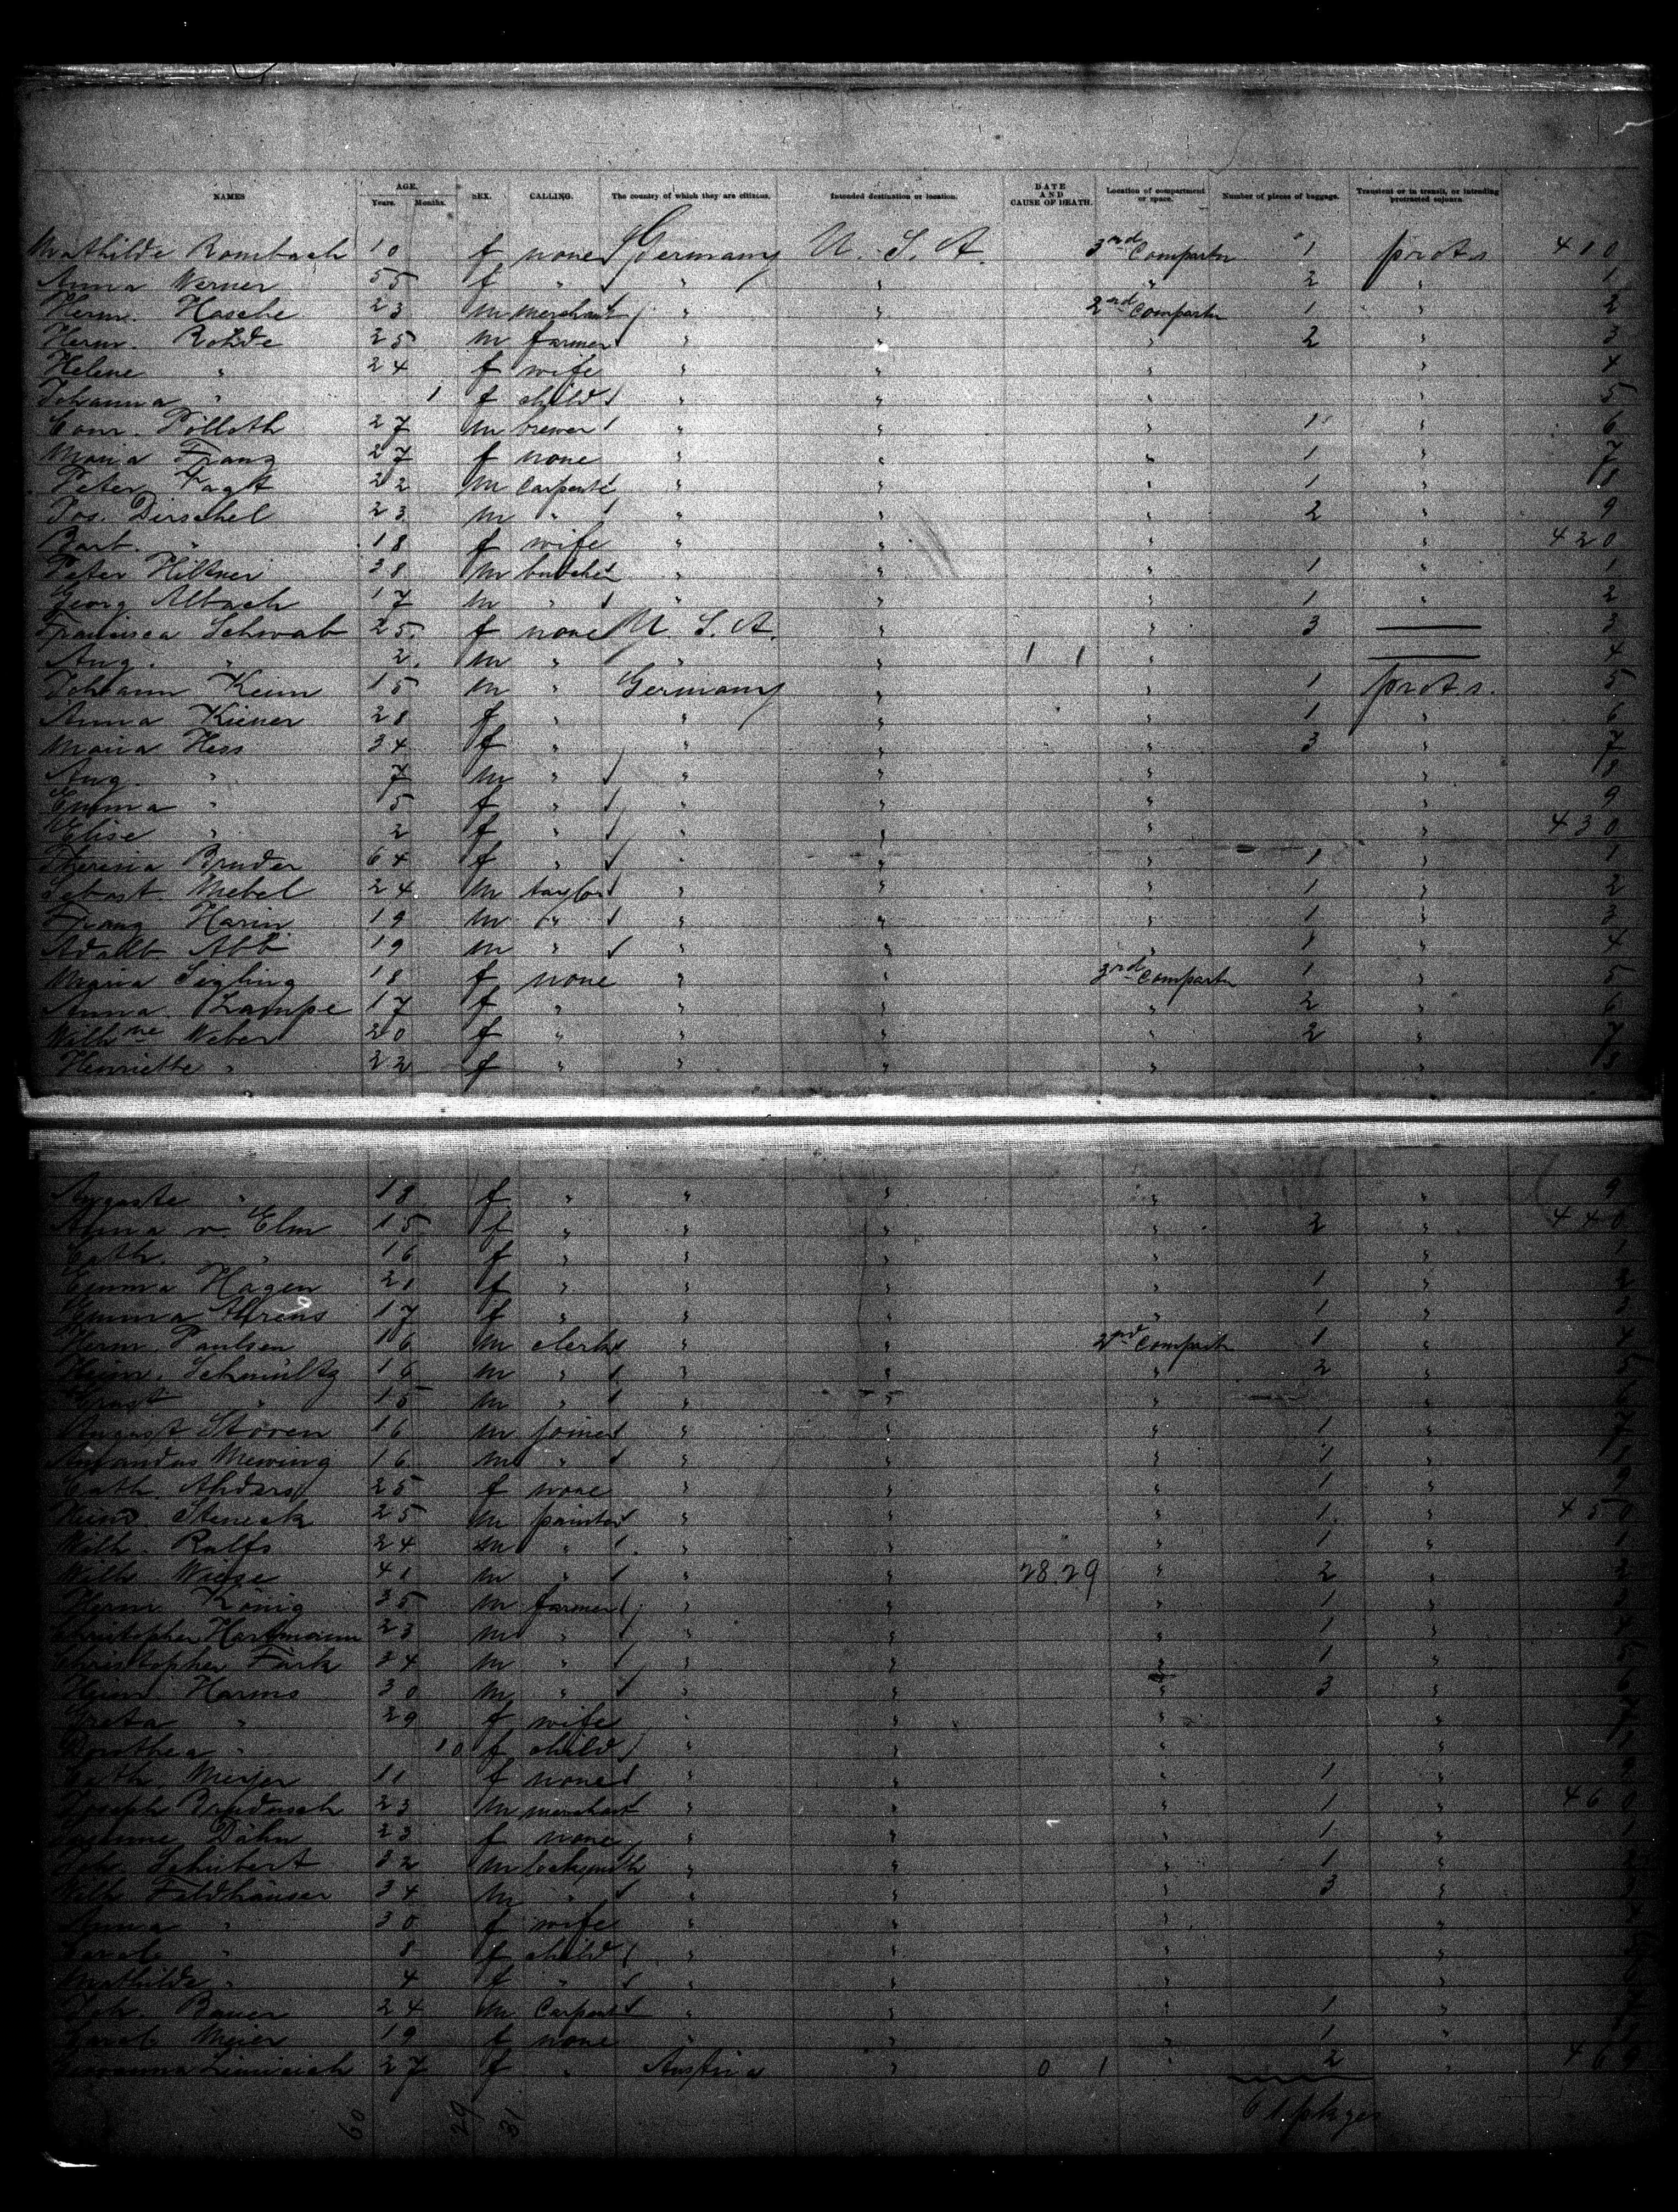 NAMES AGE. Years. Months. SEX. CALLING. The country of which they are citizens. Intended destination or location. DATE AND CAUSE OF DEATH. Location of compartment or space. Number of pieces of baggage. Transient or in transit, or intending protracted sojourn.
Mathilde Rombach 10 f none Germany U. S. A. 3rd Compartm 1 prot.s. 410
Anna Werner 55 f " " " " 2 " 1
Herm. Hasche 23 m merchant " " 2nd Compartm 1 " 2
Herm. Rohde 25 m farmer " " " 2 " 3
Helene " 24 f wife " " " " 4
Johanna " 1 f child " " " " 5
Conr. Pölloth 27 m brewer " " " 1 " 6
Maria Franz 27 f none " " " 1 " 7
Peter Vagt 22 m Carpente " " " 1 " 8
Jos. Dirschel 23 m " " " " 2 " 9
Barb. " 18 f wife " " " " 420
Peter Hiltner 38 m butcher " " " 1 " 1
Georg Albach 17 m " " " " 1 " 2
Francisca Schwab 25 f none U. S. A. " " 3 — 3
Aug. " 2 m " " " 1 1 " — 4
Johann Keim 15 m " Germany " " 1 prot.s. 5
Anna Kiener 28 f " " " " 1 " 6
Maria Hess 34 f " " " " 3 " 7
Aug. " 7 m " " " " " 8
Emma " 5 f " " " " " 9
Elise " 2 f " " " " " 430
Theresia Bruder 64 f " " " " 1 " 1
Sebast. Mebel 24 m taylor " " " 1 " 2
Franz Harin 19 m " " " " 1 " 3
Adalb Abb 19 m " " " " 1 " 4
Maria Sigling 18 f none " " 3rd Compartm 1 " 5
Anna Lampe 17 f " " " " 2 " 6
Wilh.ne Weber 20 f " " " " 2 " 7
Henriette " 22 f " " " " " 8
Auguste " 18 f " " " " " 9
Anna v. Elm 15 f " " " " 2 " 440
Cath. " 16 f " " " " " 1
Emma Hagen 21 f " " " " 1 " 2
Emma Ahrens 17 f " " " " 1 " 3
Herm. Paulsen 16 m clerk " " 2nd Compartm 1 " 4
Heinr. Schmültz 16 m " " " " 2 " 5
Ernst " 15 m " " " " " 6
August Stoven 16 m joiner " " " 1 " 7
Amandus Mewing 16 m " " " " 1 " 8
Cath. Ahders 25 f none " " " 1 " 9
Heinr. Steneck 25 m painter " " " 1 " 450
Wilh. Ralfs 24 m " " " " 1 " 1
Wilh. Wiese 41 m " " " 28.29 " 2 " 2
Herm. König 35 m farmer " " " 1 " 3
Christopher Hartmann 23 m " " " " 1 " 4
Christopher Fark 34 m " " " " 1 " 5
Heinr. Harms 30 m " " " " 3 " 6
Greta " 29 f wife " " " " 7
Dorothea " 10 f child " " " " 8
Cath. Meijer 11 f none " " " 1 " 9
Joseph 23 m merchant " " " 1 " 460
Dähn 23 f none " " " 1 " 1
Joh. Schubert 32 m locksmith " " " 1 " 2
Wilh. Feldhäuser 34 m " " " " 3 " 3
Anna " 30 f wife " " " " 4
Carol. " 8 f child " " " " 5
Mathilde " 4 f " " " " " 6
Joh. Bauer 24 m Carpent " " " 1 " 7
Carol. Meier 19 f none " " " 1 " 8
27 f " Austria " 0 1 " 2 " 469
60 29 31 61 pkges